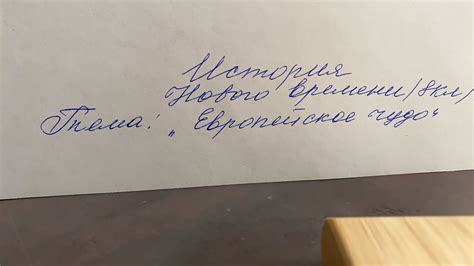 История
Нового времени/8кл/
Тема: „Европейское чудо"